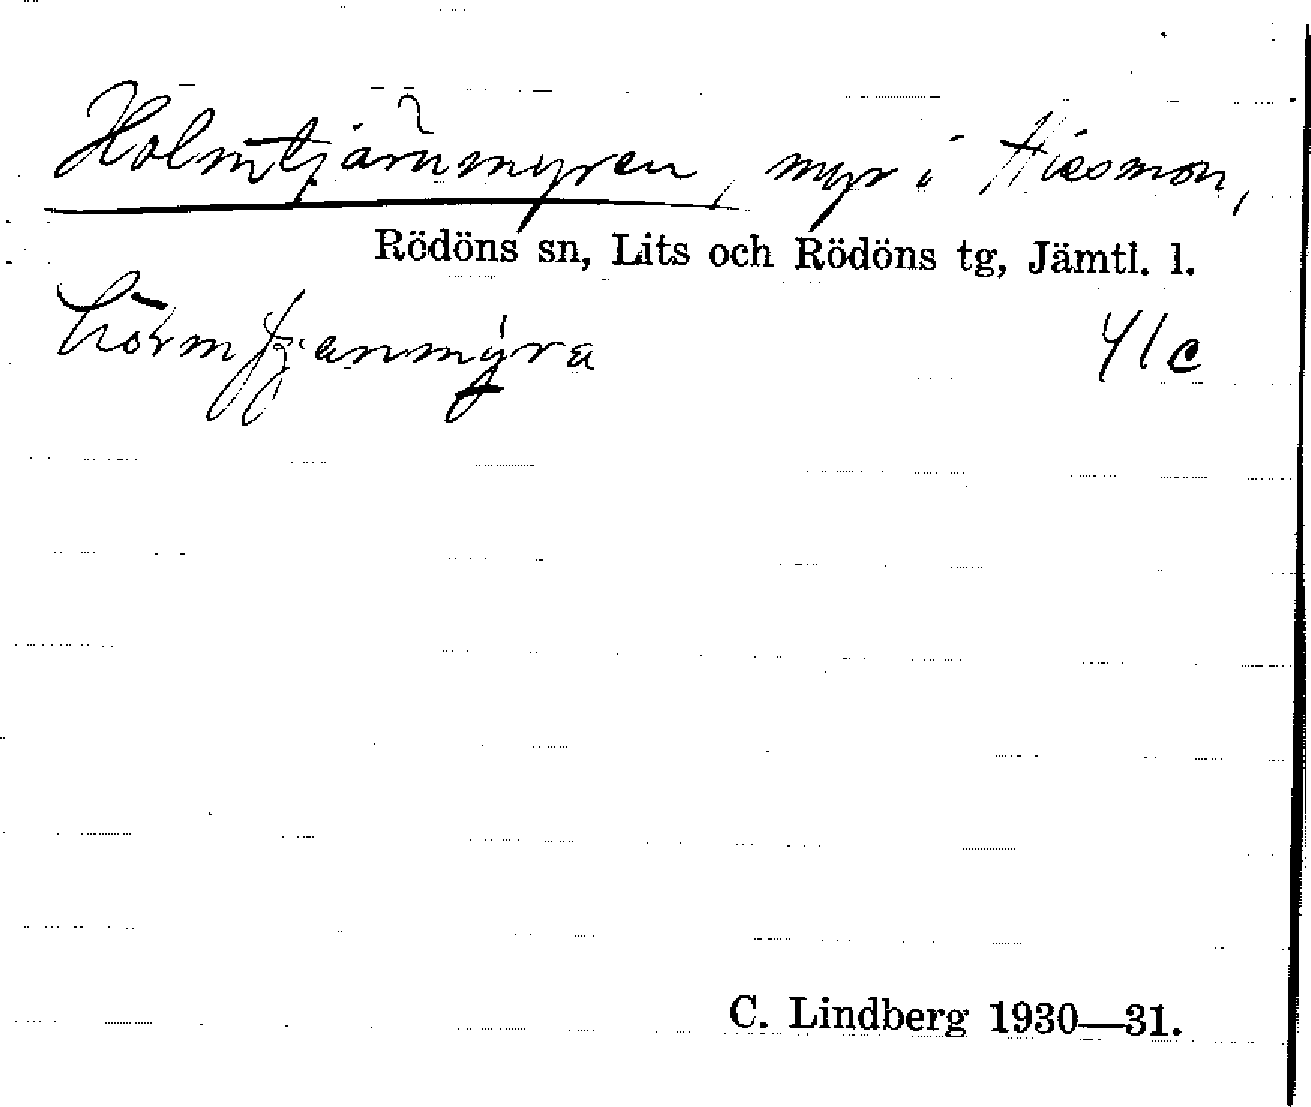 Holmtjärnmyren, myr i Hissmon,
Rödöns sn, Lits och Rödöns tg, Jämtl. l.
41c
C. Lindberg 1930—31.